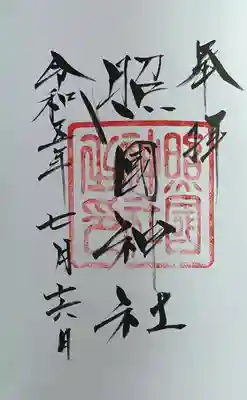 奉拝
照國神社
令和五年七月十六日
照國神社之印